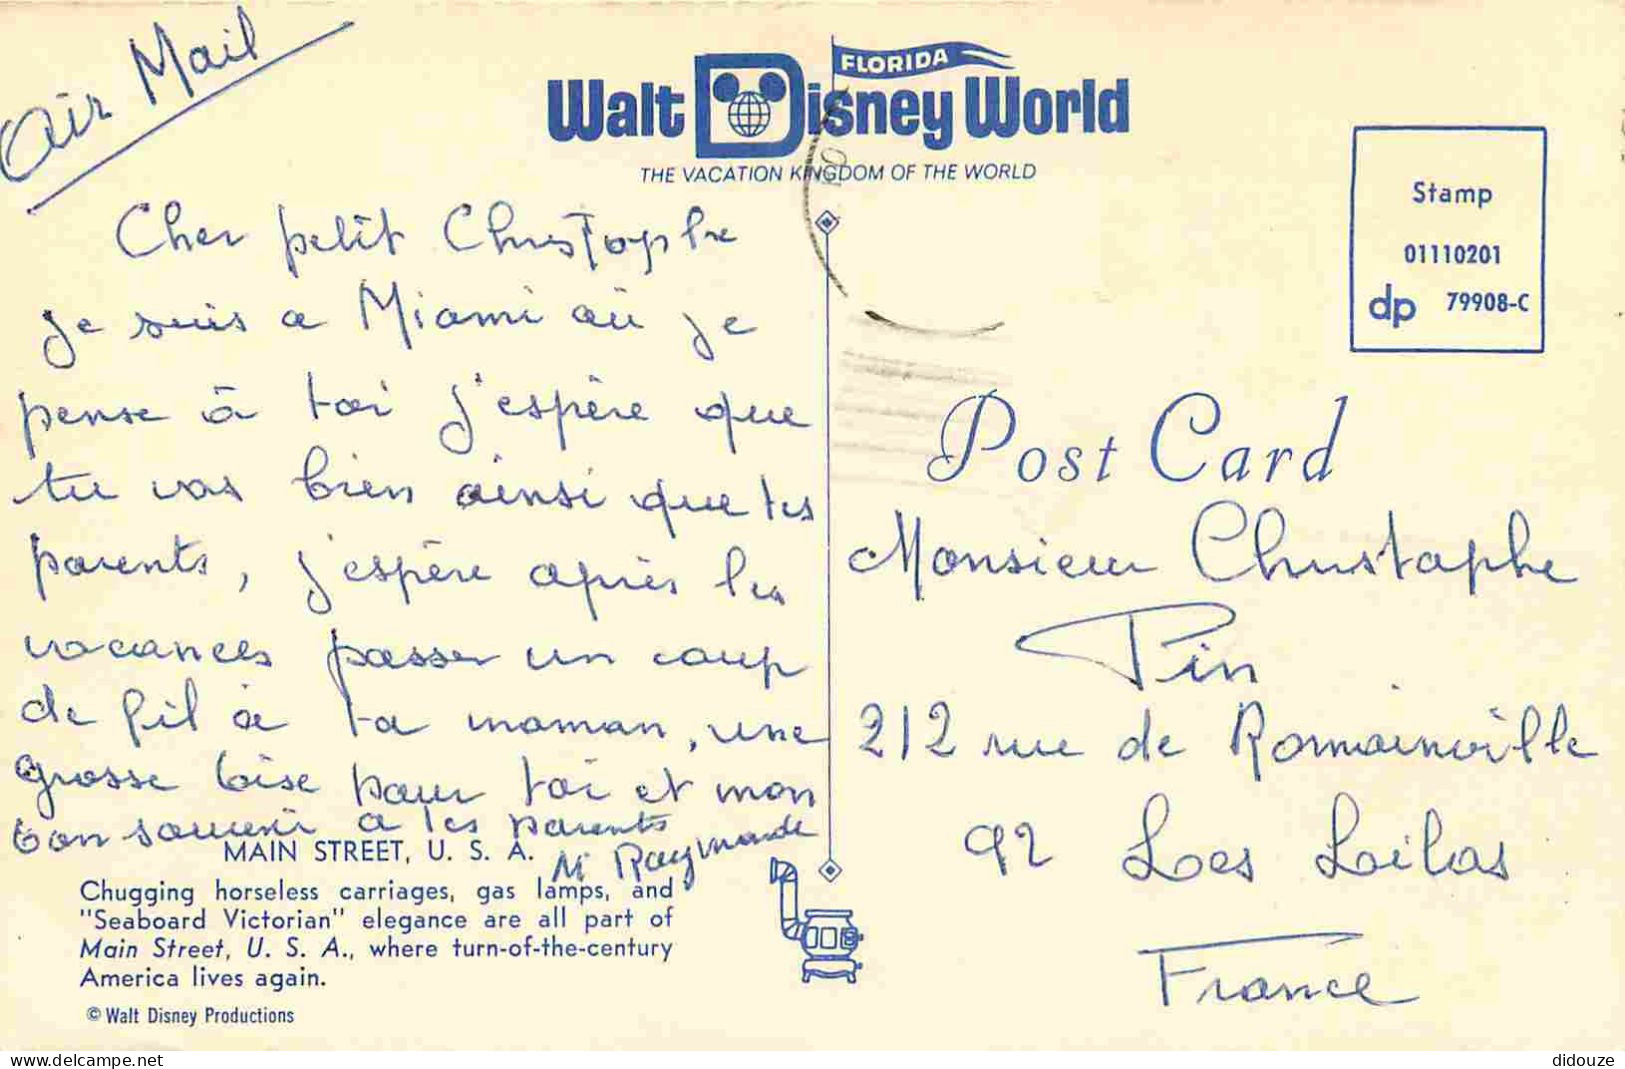 Air Mail
FLORIDA
Walt Disney World
THE VACATION KINGDOM OF THE WORLD
Stamp
01110201
dp 79908-C
Cher petit Christophe
Je suis a Miami où je
pense à toi j'espère que
tu vas bien ainsi que tes
parents, j'espère après les
vacances passer un coup
de fil à ta maman, une
grosse bise pour toi et mon
bon souvenir a tes parents
M Raymonde
MAIN STREET, U. S. A.
Chugging horseless carriages, gas lamps, and
"Seaboard Victorian" elegance are all part of
Main Street, U. S. A., where turn-of-the-century
America lives again.
© Walt Disney Productions
Post Card
Monsieur Christophe
Pin
212 rue de Romainville
92 Les Loilas
France
didouze